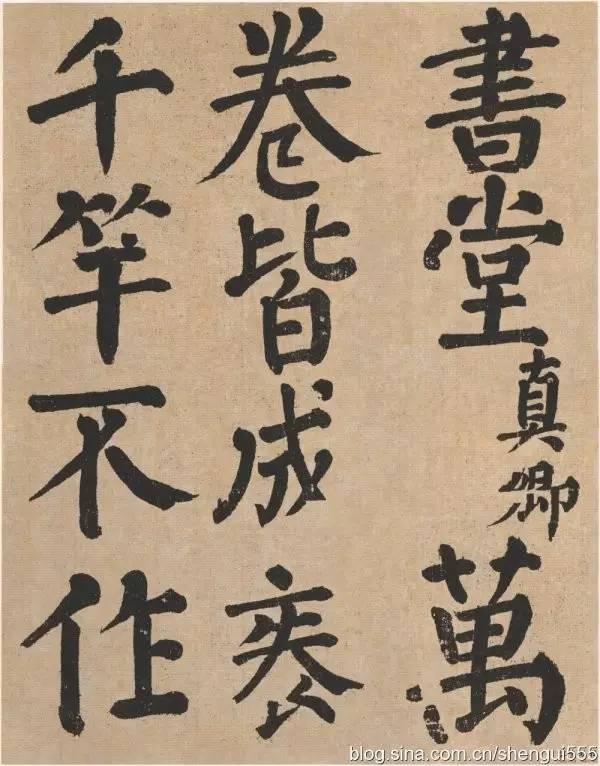 書堂真卿萬
卷皆成袠
千竿不作
blog.sina.com.cn/shengui555